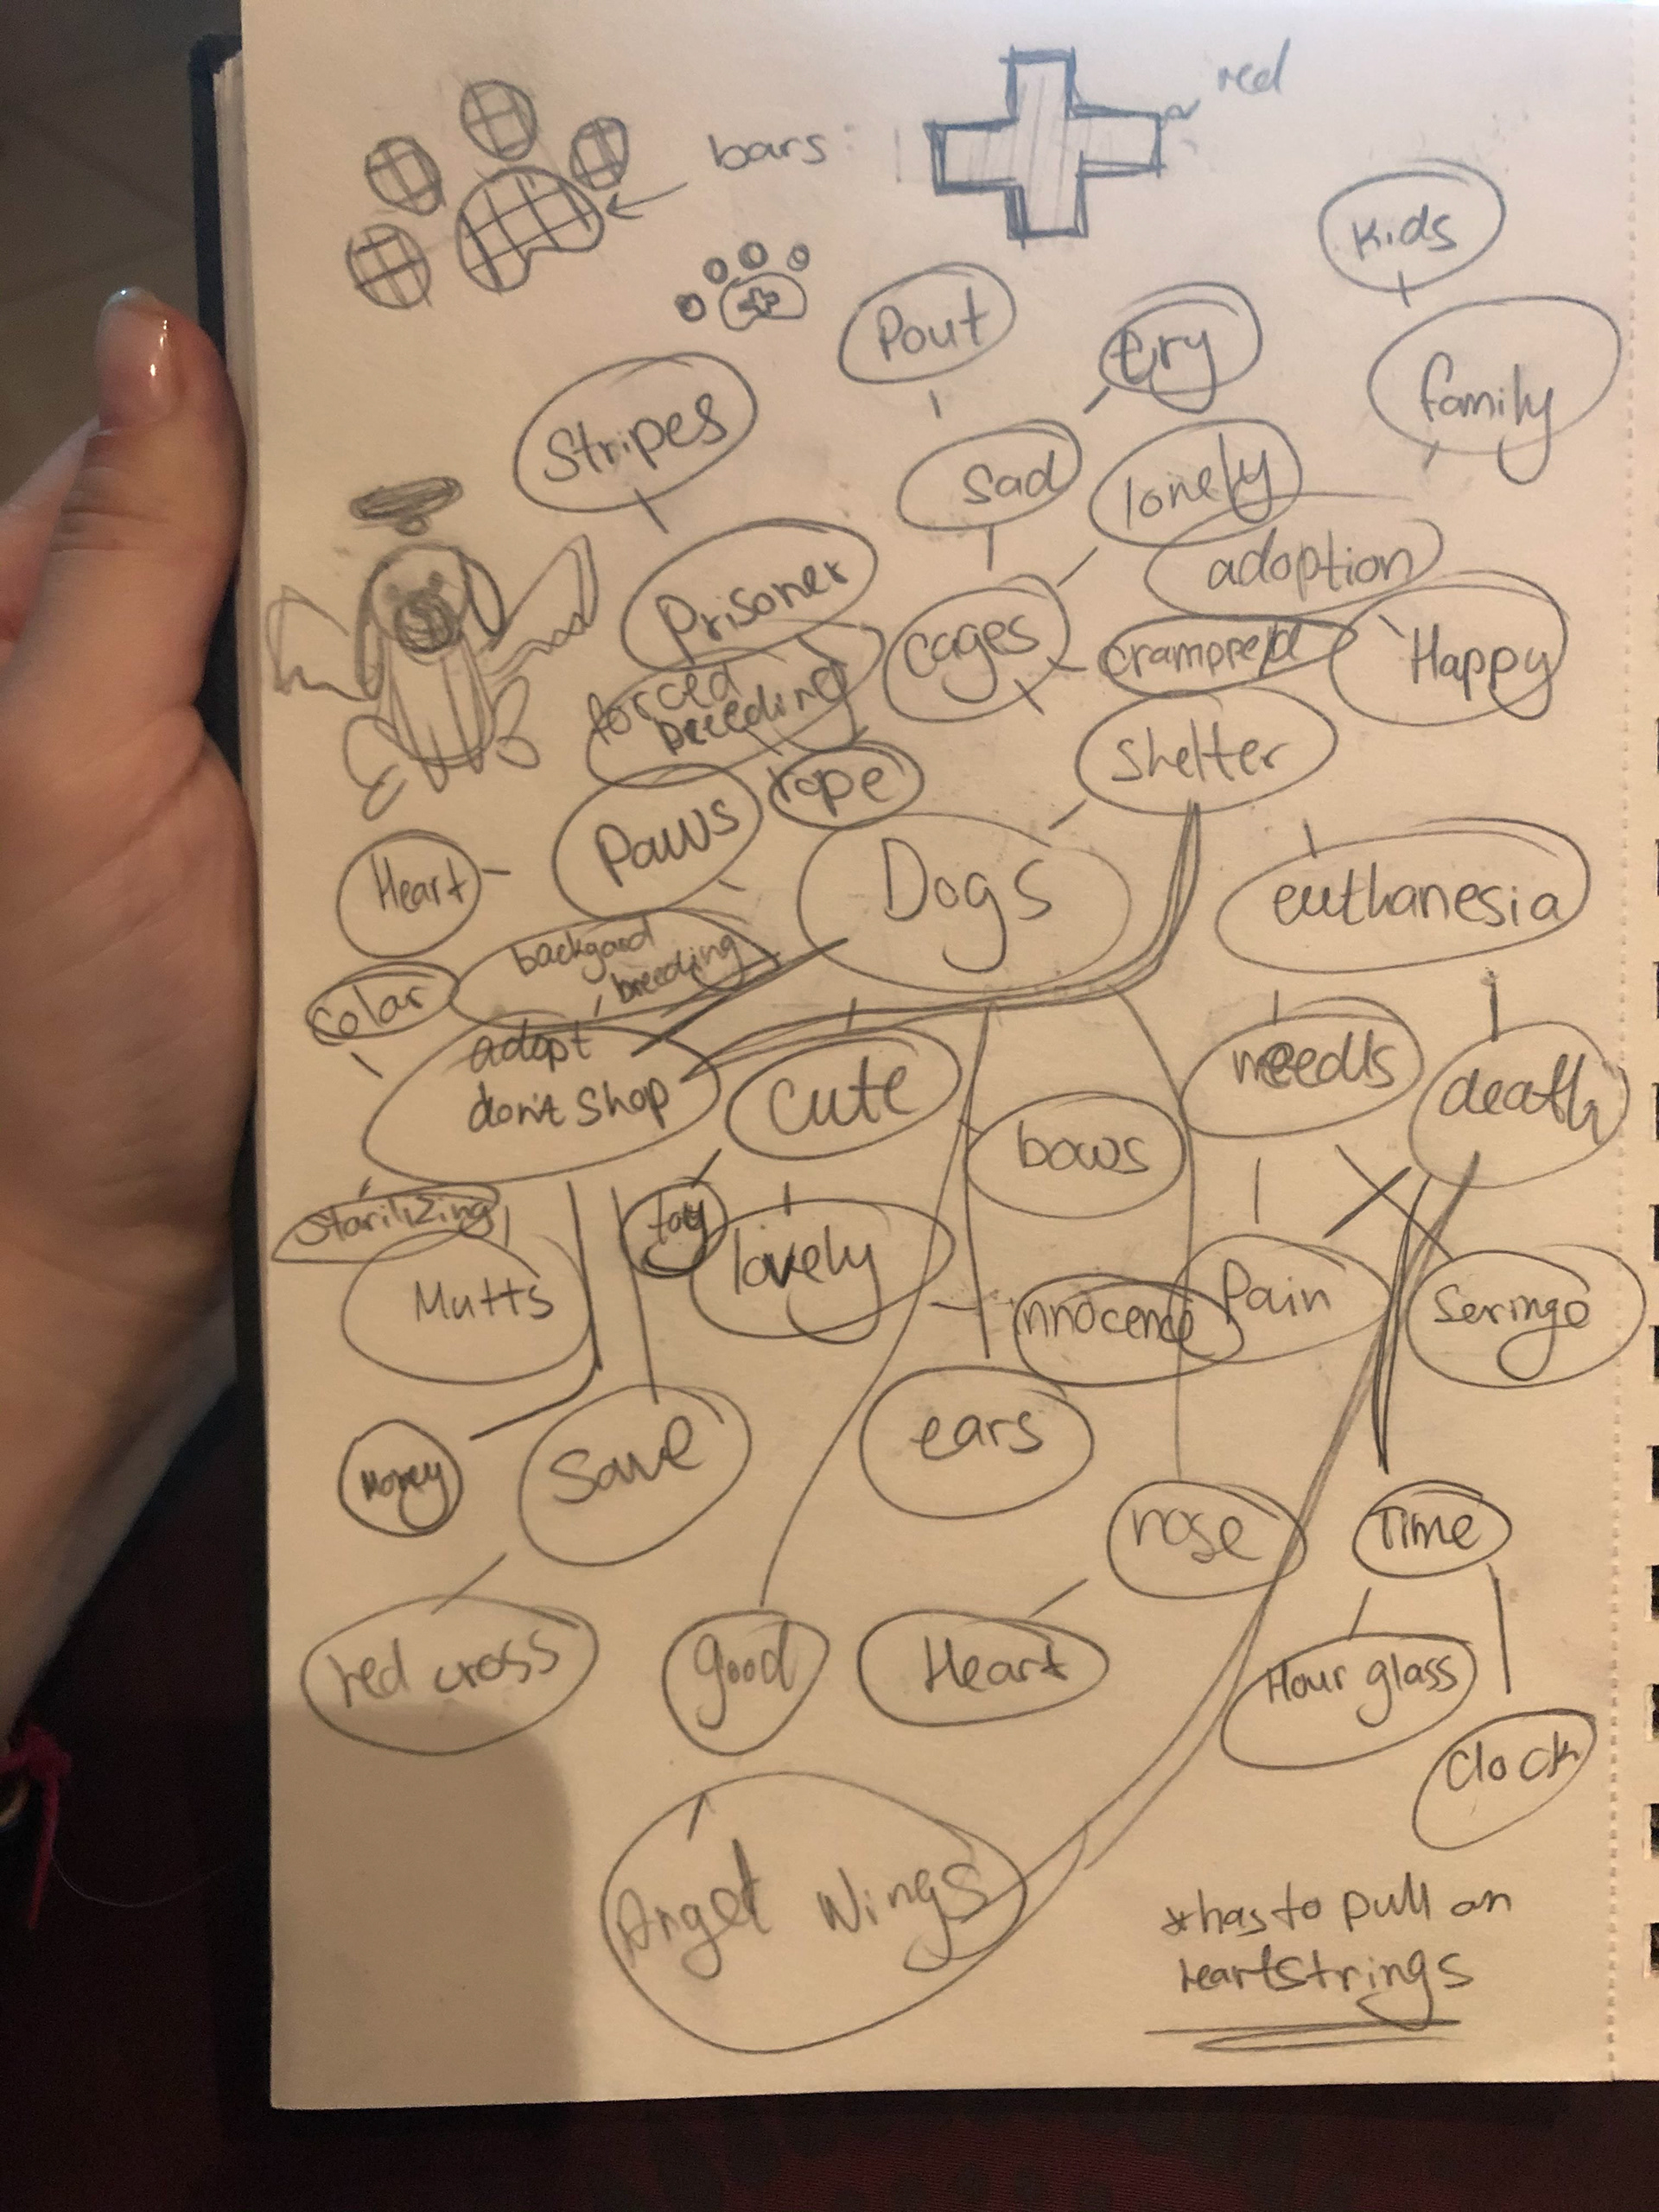 red
bars
Kids
Pout
cry
family
Stripes
Sad
lonely
adoption
Prisoner
cages
crampped
Happy
forced
breeding
Shelter
rope
Paws
Dogs
Heart
euthanesia
backyard
breeding
Colar
adopt
don't shop
cute
needls
death
bows
Starilizing
toy
lovely
Mutts
innocence
Pain
Seringe
ears
Money
Save
nose
Time
red cross
good
Heart
Hour glass
Clock
Angel Wings
*has to pull on
heartstrings